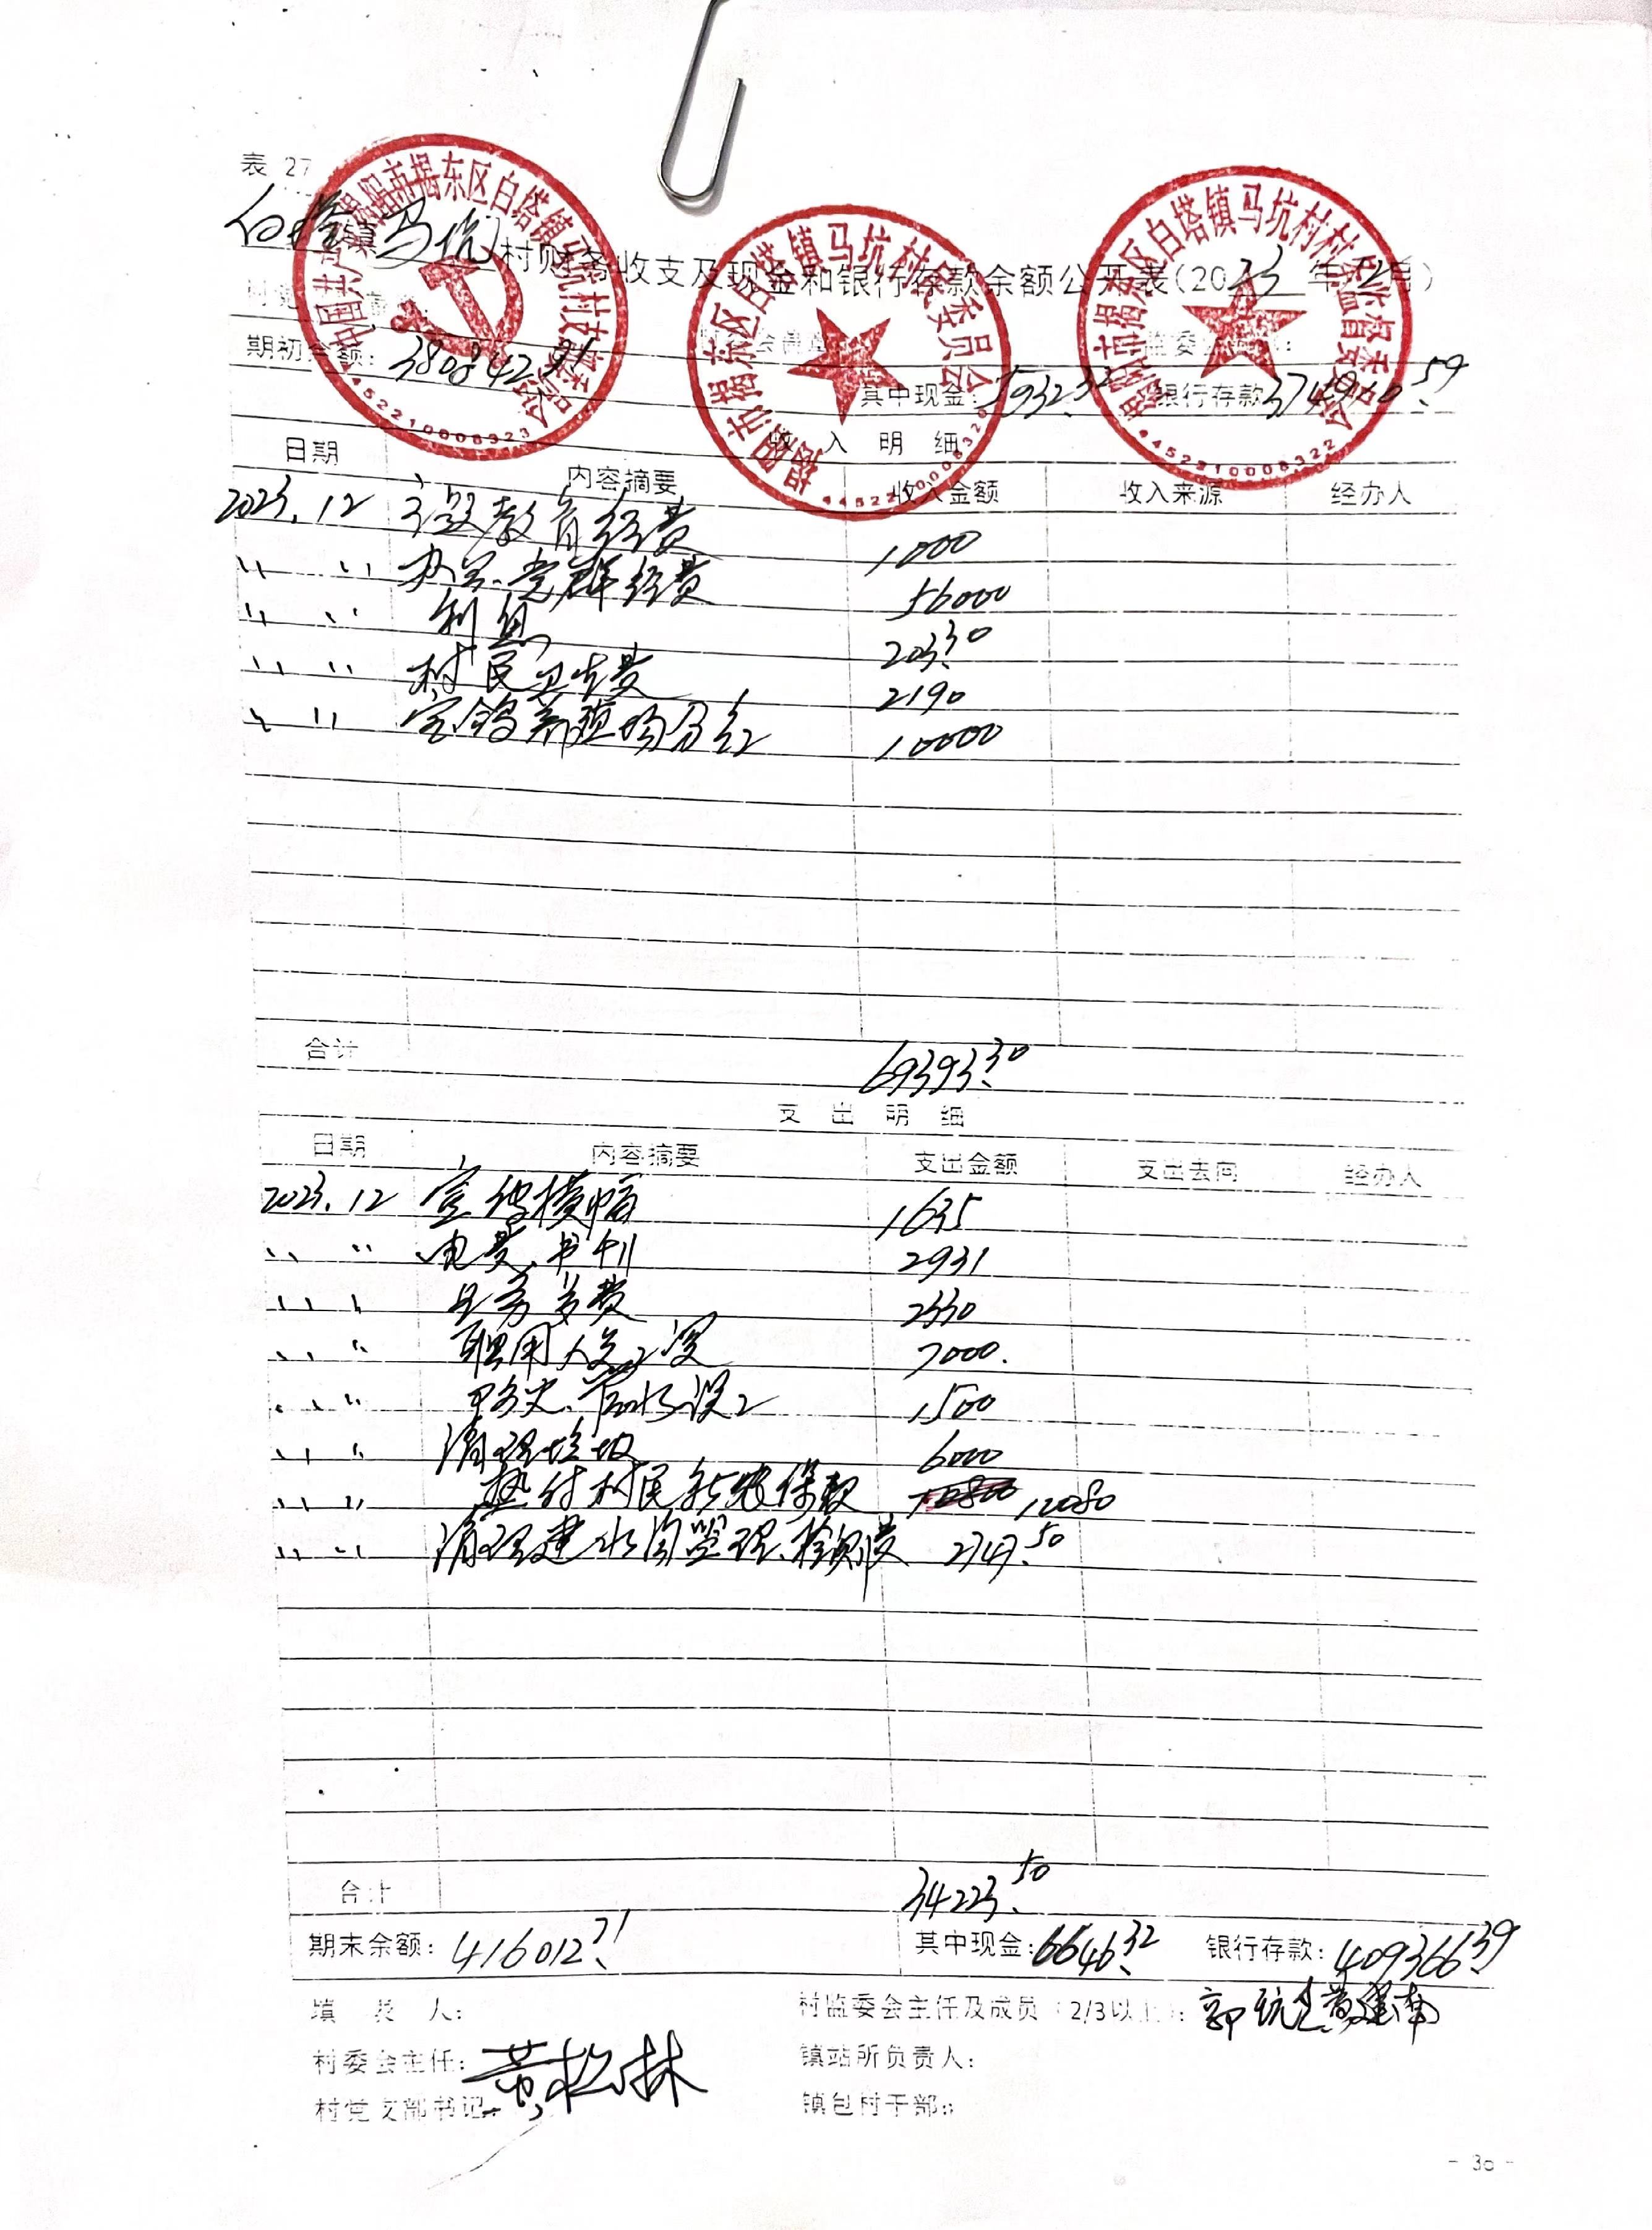 表 27
白塔镇马坑村财务收支及现金和银行存款余额公开表(2023年12月)
期初余额: 380842.91 其中现金: 5932.32 银行存款 374910.59
收 入 明 细
日期 内容摘要 收入金额 收入来源 经办人
2023.12 主题教育经费 1000
〃 〃 办公、党群经费 56000
〃 〃 利息 203.30
〃 〃 村民卫生费 2190
〃 〃 鸽养殖场分红 10000
合计 69393.30
支 出 明 细
日期 内容摘要 支出金额 支出去向 经办人
2023.12 宣传横幅 1635
〃 〃 电费、书刊 2931
〃 〃 务费 2330
〃 〃 聘用人员工资 7000.
〃 〃 管水员工 1500
〃 〃 清理垃圾 6000
〃 〃 垫付村民新农保款 10800 12080
〃 〃 清理建水沟监理、检测费 2747.50
合计 34223.50
期末余额: 416012.71 其中现金: 6646.32 银行存款: 409366.39
填 表 人: 村监委会主任及成员(2/3以上): 郭 黄建南
村委会主任: 黄松林 镇站所负责人:
村党支部书记: 镇包村干部:
- 30 -
中国共产党揭阳市揭东区白塔镇马坑村支部委员会
4452210008323
揭阳市揭东区白塔镇马坑村村民委员会
揭阳市揭东区白塔镇马坑村村务监督委员会
4452210008322